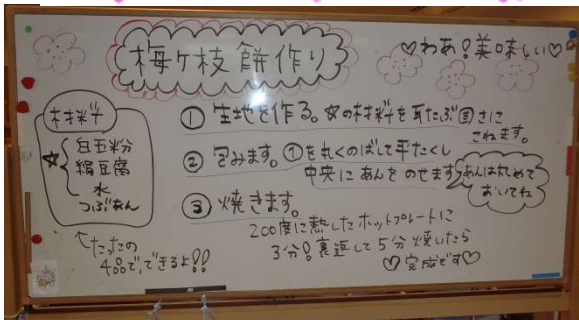 梅ヶ枝餅作り
♡わあ!美味しい♡
材料
☆
白玉粉
絹豆腐
水
つぶあん
←たったの
4品で、できるよ!!
① 生地を作る。☆の材料を耳たぶ固さに
こねます。
② 包みます。①を丸くのばして平たくし
中央にあんをのせます
あんは丸めて
おいてね
③ 焼きます。
200度に熱したホットプレートに
3分!裏返して5分焼いたら
♡完成です♡